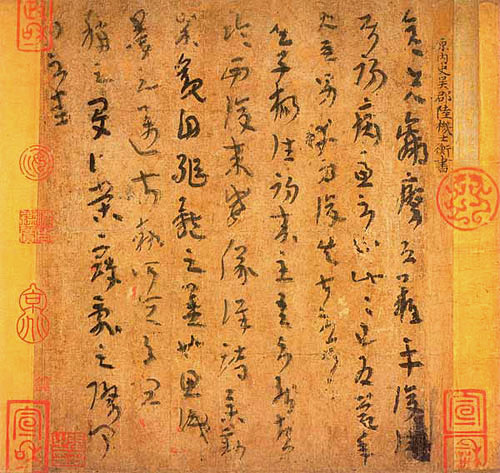 晉內史吳郡陸機士衡書
彥先羸瘵恐難平復往屬
初病慮不止此此已為慶承
使唯男幸為復失前憂耳
吳子楊往初來主吾不能盡
臨西復來威儀詳跱舉動
成觀自軀體之美也思識
量之邁前執所恆有宜
稱之夏伯榮寇亂之際聞
問不悉